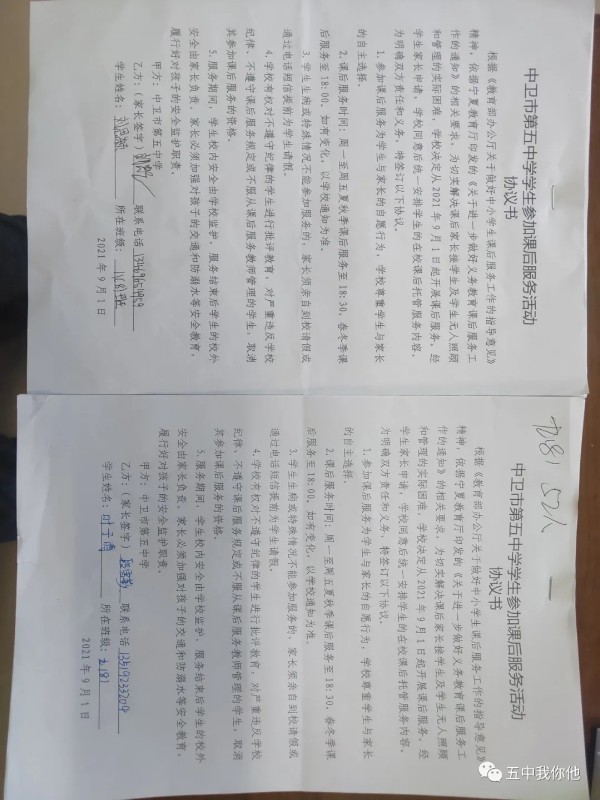 中卫市第五中学学生参加课后服务活动
协议书
根据《教育部办公厅关于做好中小学生课后服务工作的指导意见》
精神，依据宁夏教育厅印发的《关于进一步做好义务教育课后服务工
作的通知》的相关要求，为切实解决课后家长接学生及学生无人照顾
和管理的实际困难，学校决定从 2021 年 9 月 1 日起开展课后服务，经
学生家长申请，学校同意后统一安排学生的在校课后托管服务内容，
为明确双方责任和义务，特签订以下协议。
1. 参加课后服务为学生与家长的自愿行为，学校尊重学生与家长
的自主选择。
2. 课后服务时间：周一至周五夏秋季课后服务至 18:30，春冬季课
后服务至 18:00，如有变化，以学校通知为准。
3. 学生生病或特殊情况不能参加服务的，家长须亲自到校请假或
通过电话短信提前为学生请假。
4. 学校有权对不遵守纪律的学生进行批评教育，对严重违反学校
纪律、不遵守课后服务规定或不服从课后服务教师管理的学生，取消
其参加课后服务的资格。
5. 服务期间，学生校内安全由学校监护，服务结束后学生的校外
安全由家长负责，家长必须加强对孩子的交通和防溺水等安全教育，
履行好对孩子的安全监护职责。
甲方：中卫市第五中学
乙方：（家长签字） 联系电话
学生姓名： 所在班级：
2021 年 9 月 1 日
52人
中卫市第五中学学生参加课后服务活动
协议书
根据《教育部办公厅关于做好中小学生课后服务工作的指导意见》
精神，依据宁夏教育厅印发的《关于进一步做好义务教育课后服务工
作的通知》的相关要求，为切实解决课后家长接学生及学生无人照顾
和管理的实际困难，学校决定从 2021 年 9 月 1 日起开展课后服务，经
学生家长申请，学校同意后统一安排学生的在校课后托管服务内容，
为明确双方责任和义务，特签订以下协议。
1. 参加课后服务为学生与家长的自愿行为，学校尊重学生与家长
的自主选择。
2. 课后服务时间：周一至周五夏秋季课后服务至 18:30，春冬季课
后服务至 18:00，如有变化，以学校通知为准。
3. 学生生病或特殊情况不能参加服务的，家长须亲自到校请假或
通过电话短信提前为学生请假。
4. 学校有权对不遵守纪律的学生进行批评教育，对严重违反学校
纪律、不遵守课后服务规定或不服从课后服务教师管理的学生，取消
其参加课后服务的资格。
5. 服务期间，学生校内安全由学校监护，服务结束后学生的校外
安全由家长负责，家长必须加强对孩子的交通和防溺水等安全教育，
履行好对孩子的安全监护职责。
甲方：中卫市第五中学
乙方：（家长签字） 联系电话 13519233209
学生姓名： 所在班级：
2021 年 9 月 1 日
五中我你他